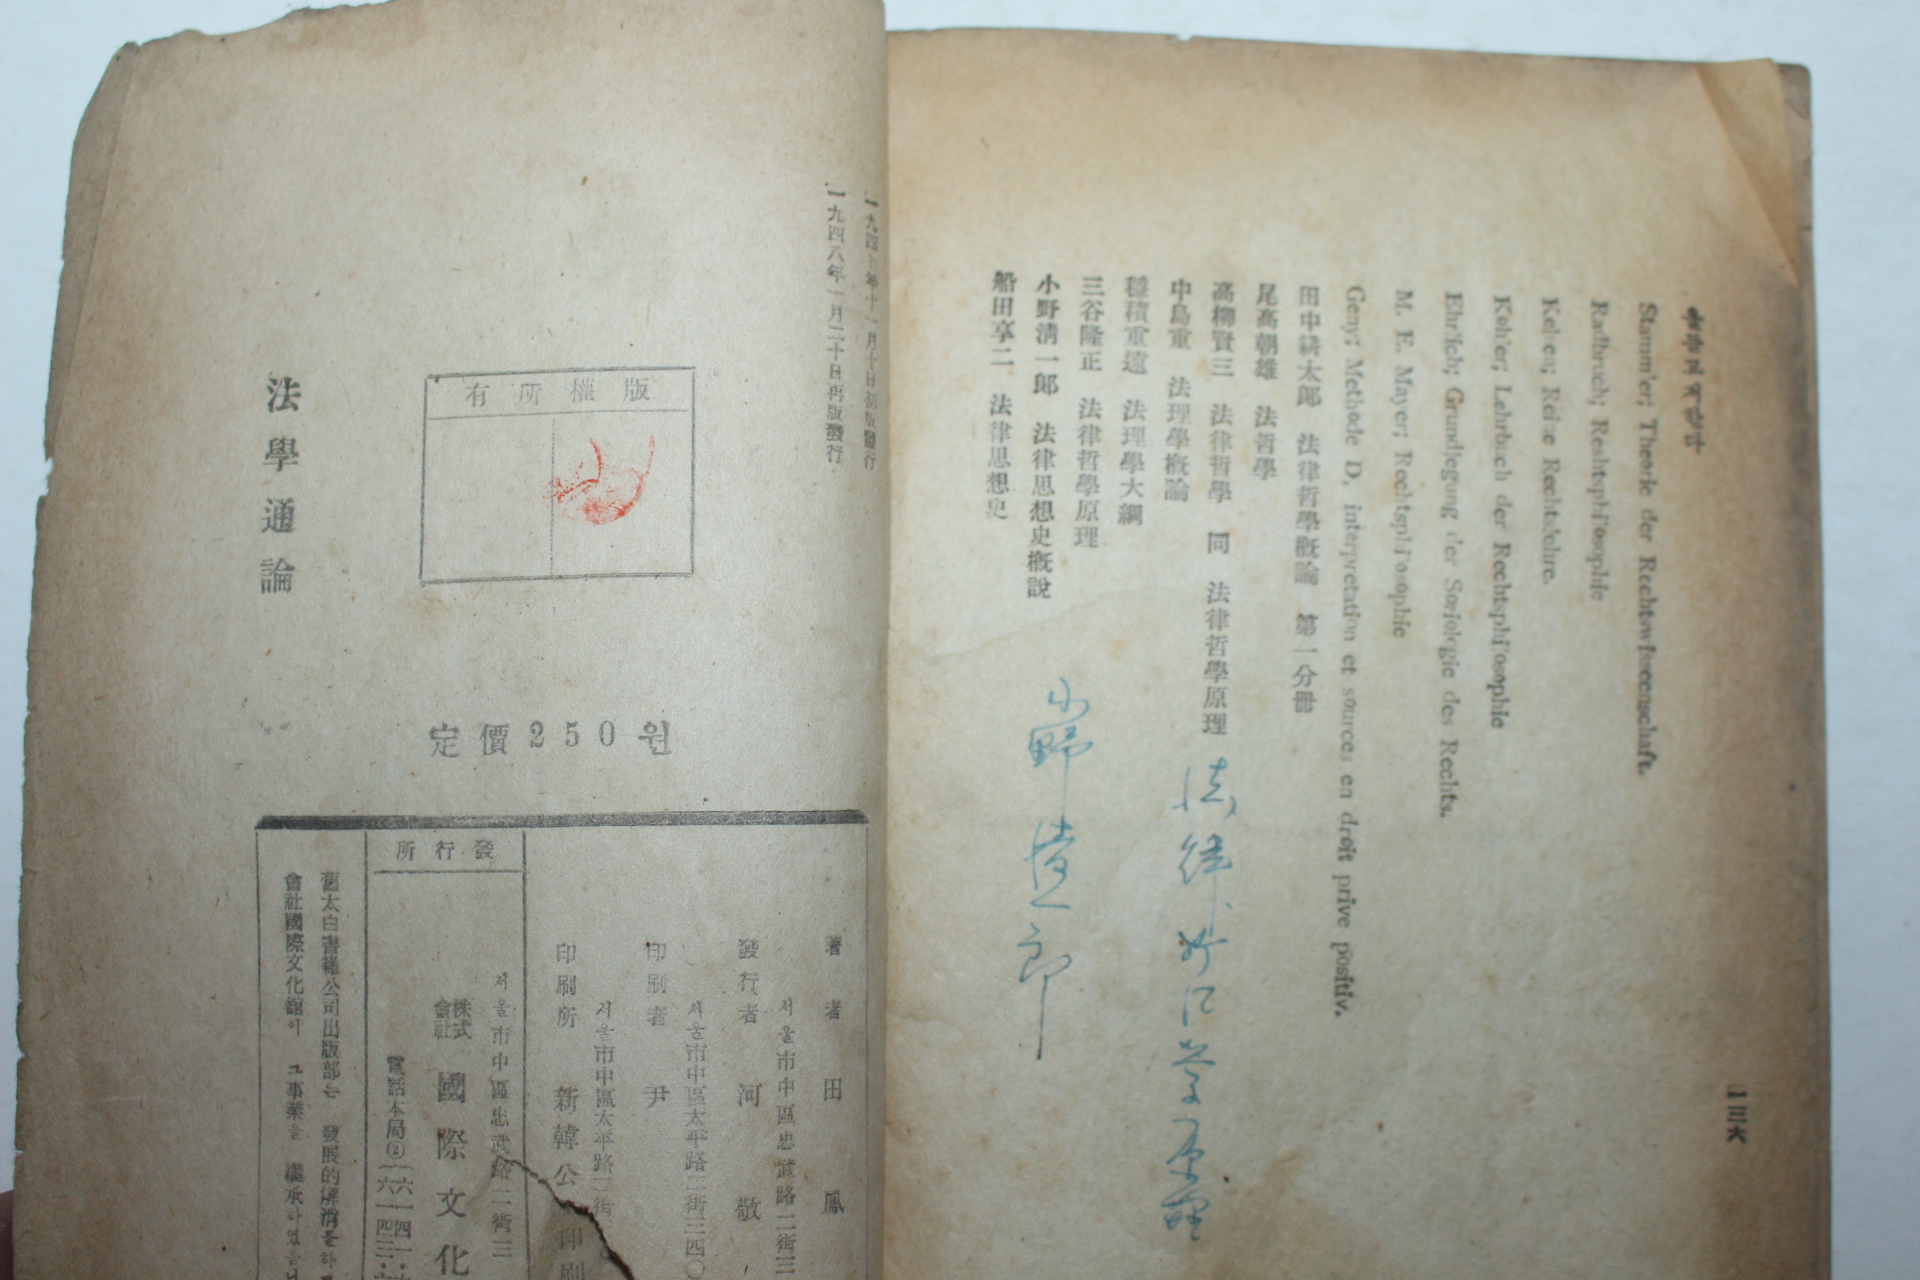 Stammler; Theorie der Rechtswissenschaft.
Radbruch; Reshtsphilosophie
Kelsen; Reine Rechtslehre.
Kohler; Lehrbuch der Rechtsphilosophie
Ehrlich; Grundlegung der Soziologie des Rechts.
M. E. Mayer; Rechtsphilosophie
Geny; Methode D. interpretation et sources en droit prive positiv.
田中耕太郎 法律哲學槪論 第一分冊
尾高朝雄 法哲學
高柳賢三 法律哲學 同 法律哲學原理
中島重 法理學槪論
穗積重遠 法理學大綱
三谷隆正 法律哲學原理
小野淸一郎 法律思想史槪說
船田享二 法律思想史
法律
原理
小野淸一郎
一三六
一九四七年十一月十日初版發行
一九四八年一月二十日再版發行
版權所有
法學通論
定價250원
著者 田鳳
서울市中區忠武路二街三
發行者 河敬
서울市中區太平路二街三四〇
印刷者 尹
서울市中區太平路二街
印刷所 新韓公 印刷
서울市中區忠武路二街三
發行所
株式會社 國際文化
電話本局②
舊太白書籍公司出版部는 發展的解消를하
會社國際文化館이 그事業을 繼承하였습니